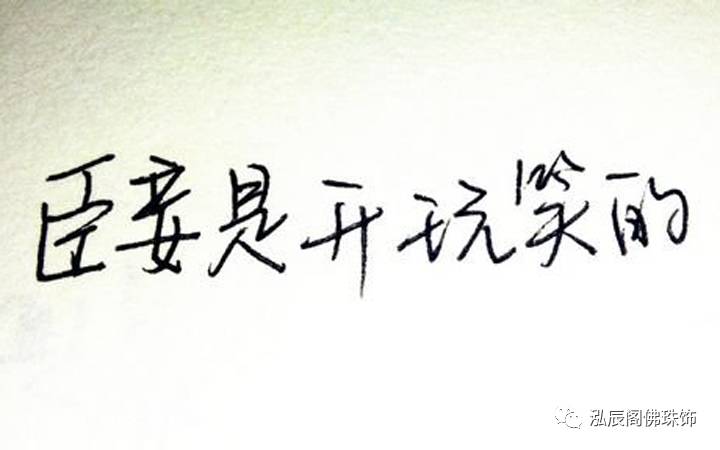 臣妾是开玩笑的
泓辰阁佛珠饰